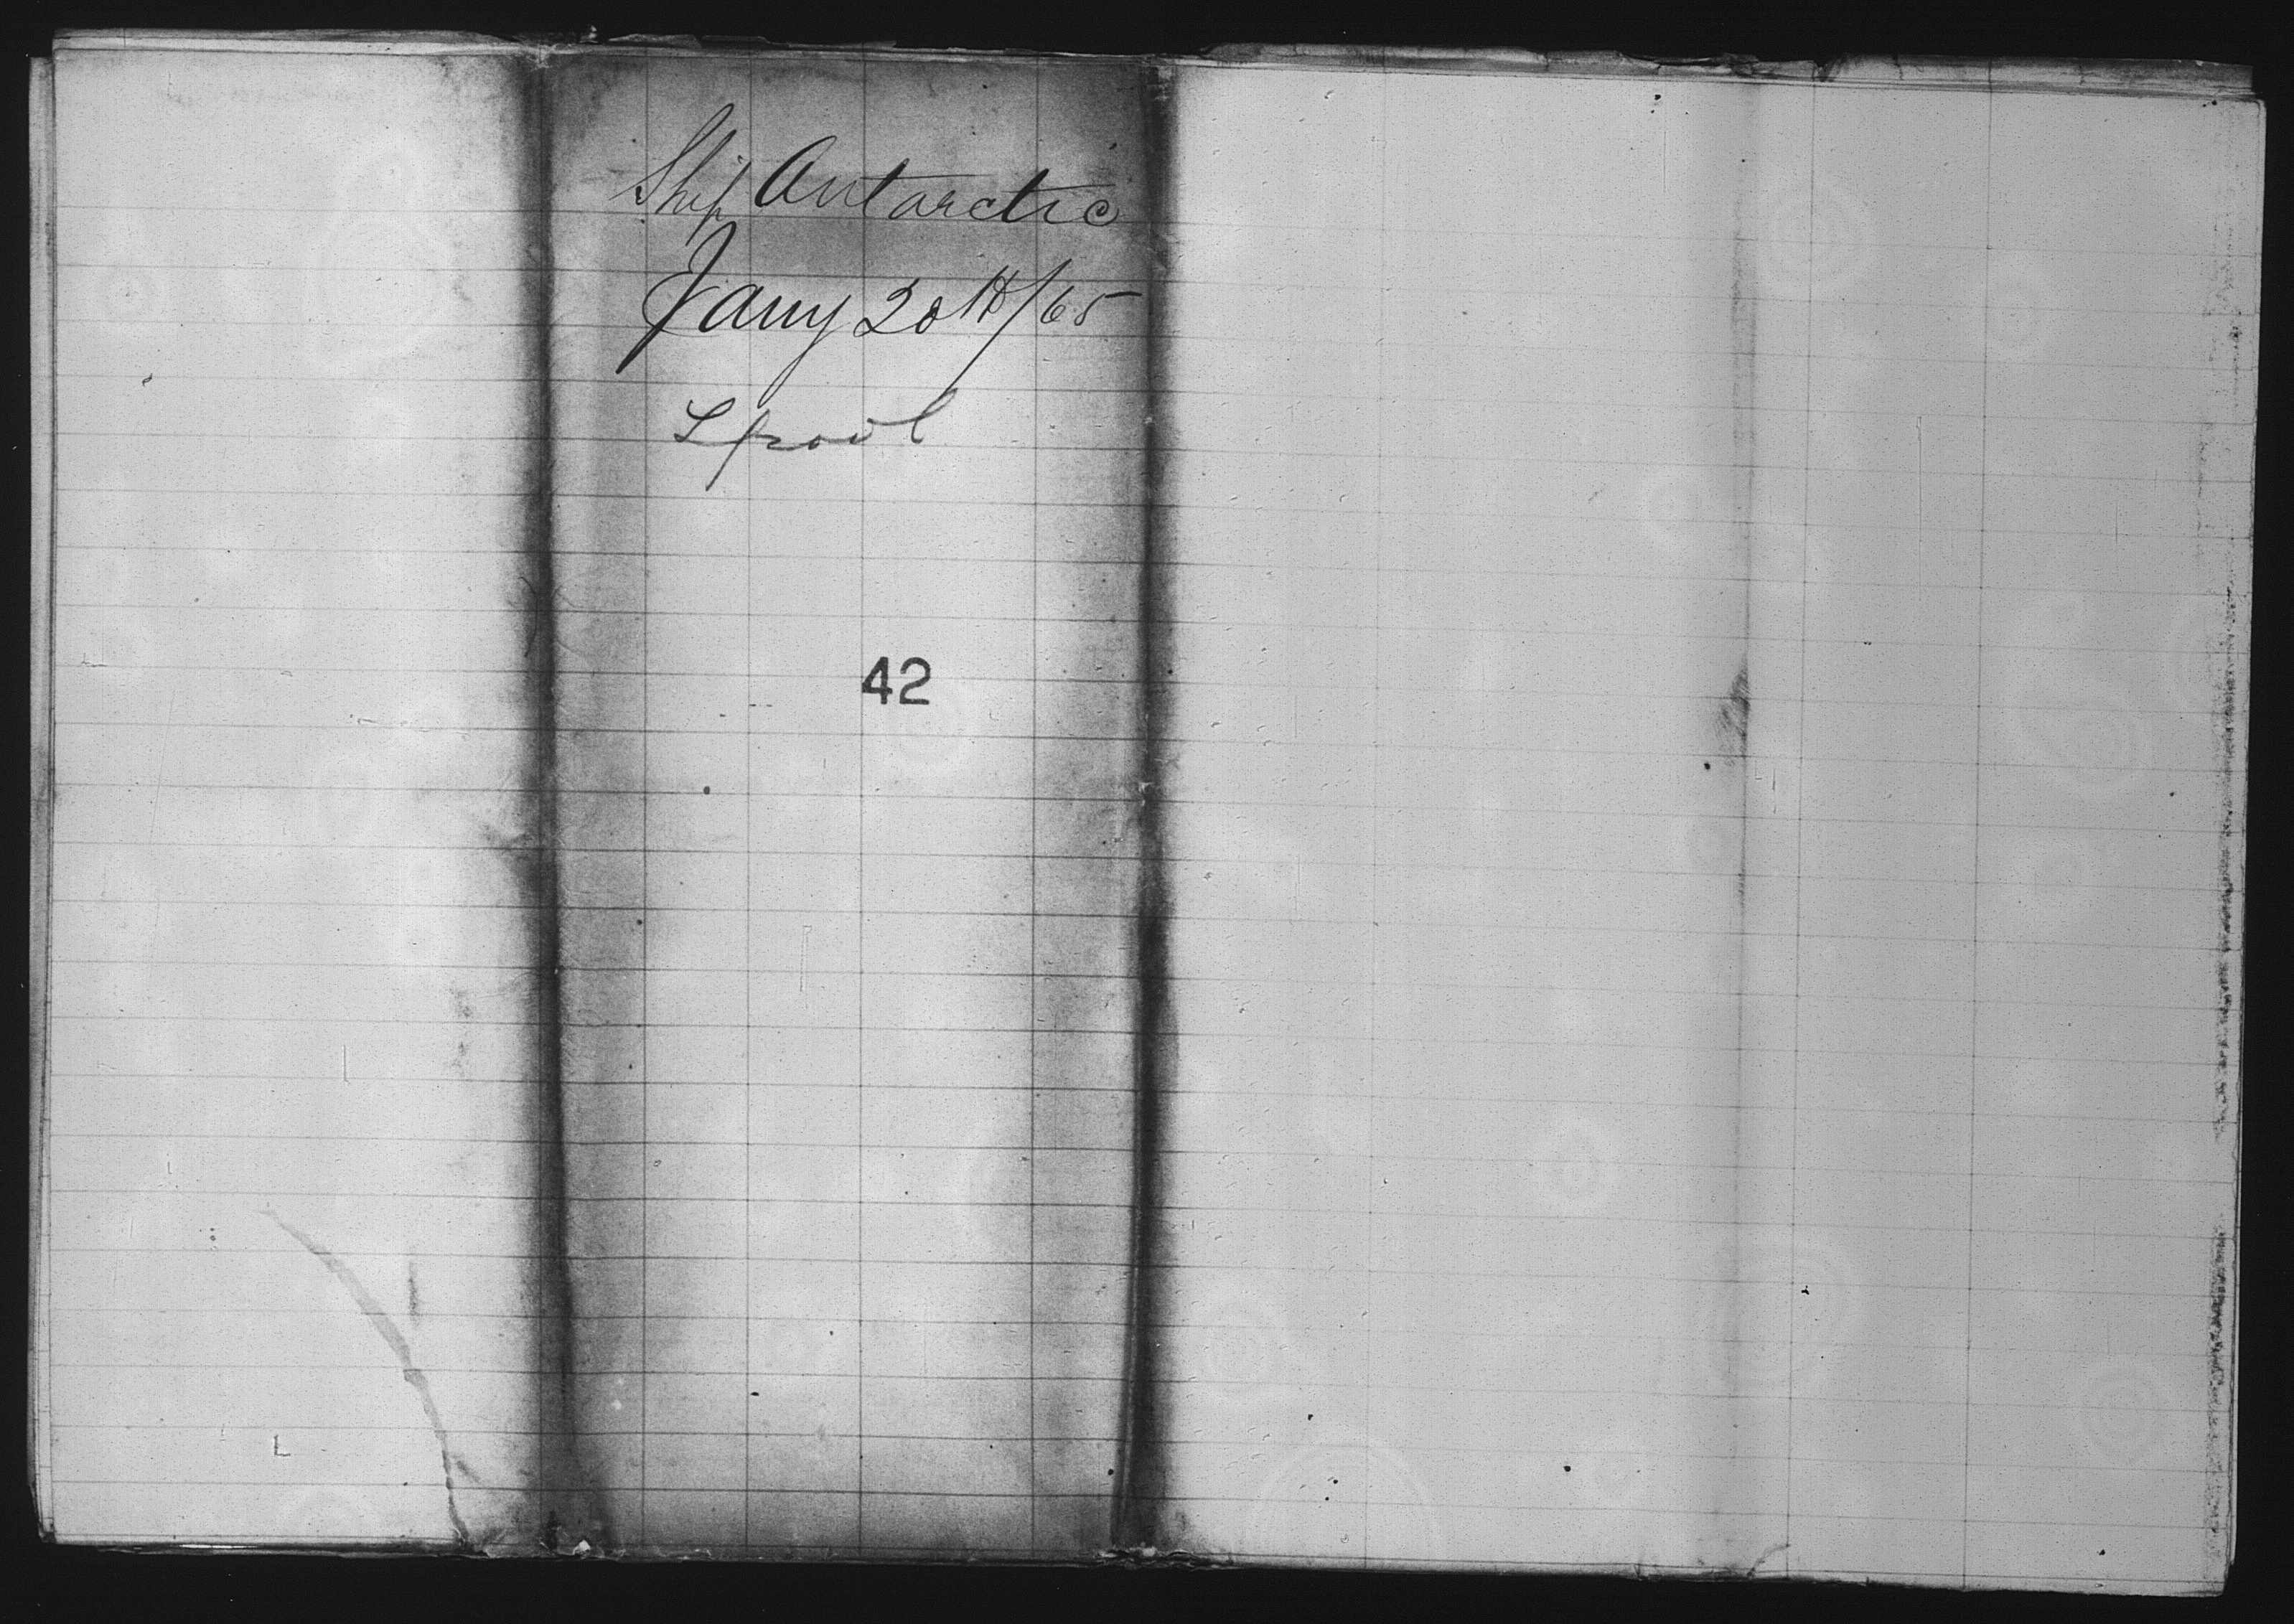 Ship Antarctic
Jany 20th/65
Lpool
42